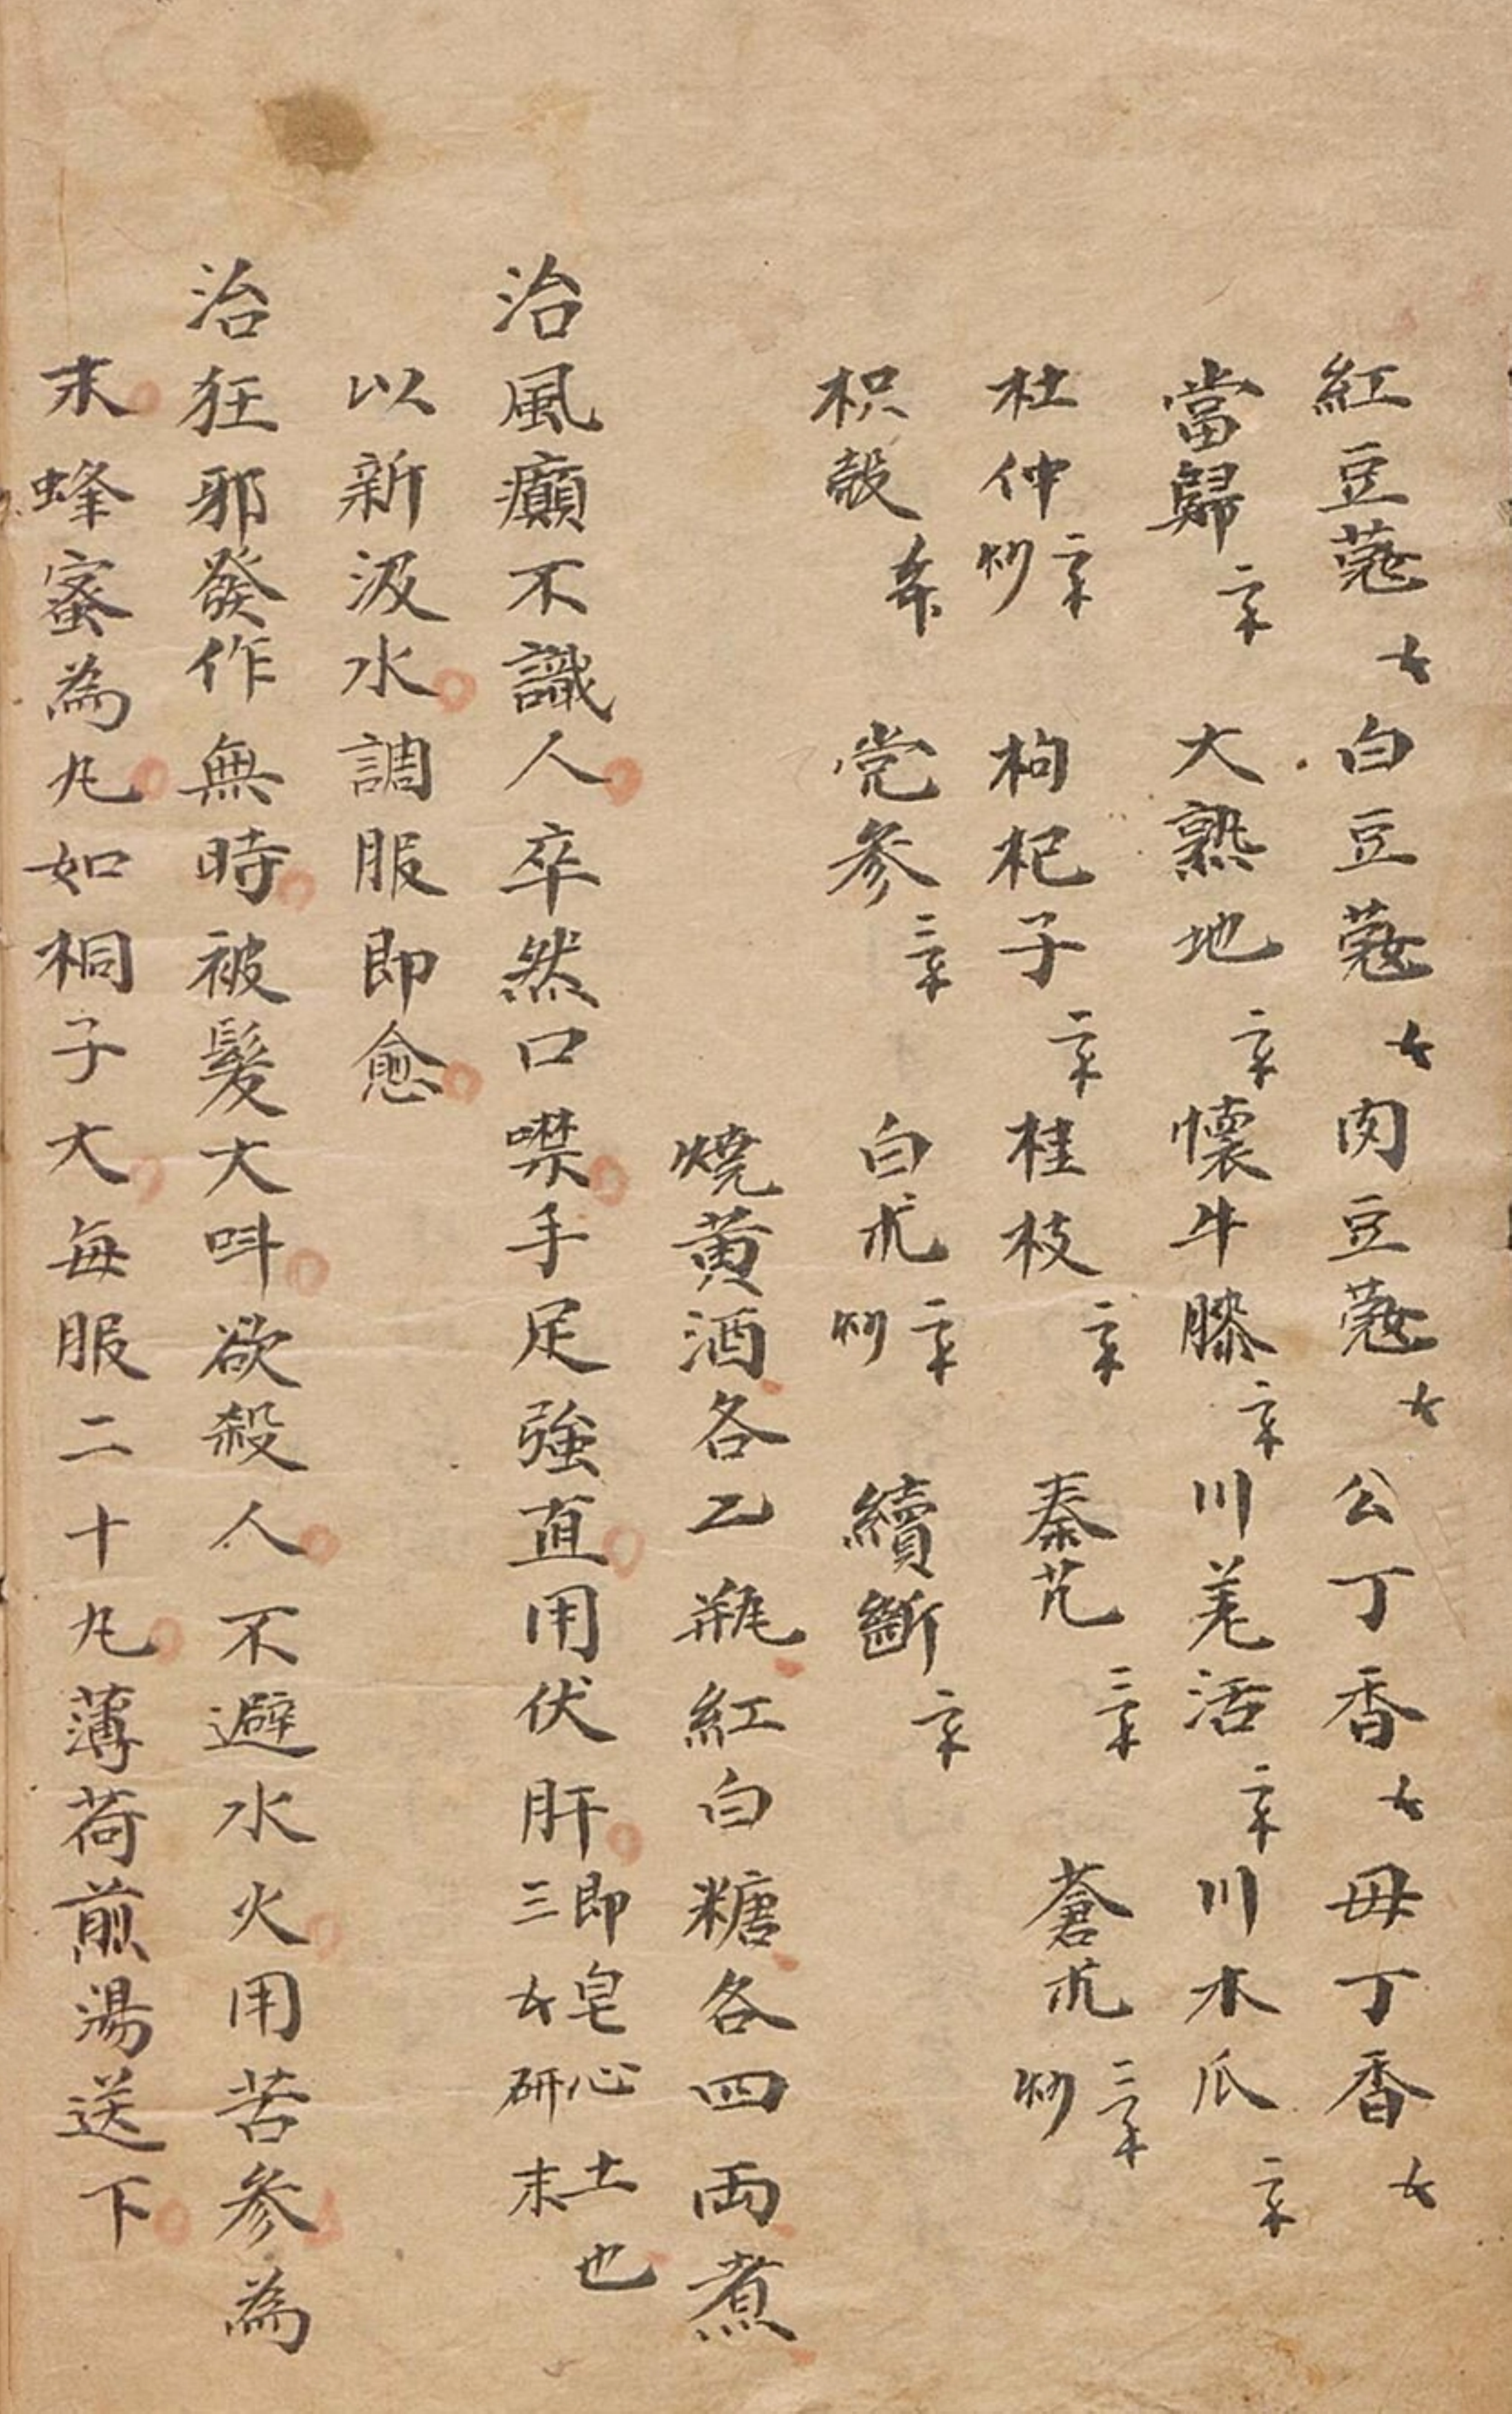 紅豆蔻 白豆蔻 肉豆蔻 公丁香 毋丁香
當歸 大熟地 懷牛膝 川羌活 川木瓜
杜仲炒 枸杞子 桂枝 秦艽 蒼朮炒
枳殼 党參 白朮炒 續斷
燒黄酒各乙瓶紅白糖各四両煮
治風癲不識人卒然口噤手足強直用伏肝即皂心土也三 研末
以新汲水調服即愈
治狂邪發作無時被髮大呌欲殺人不避水火用苦參為
末蜂蜜為丸如桐子大每服二十丸薄荷煎湯送下